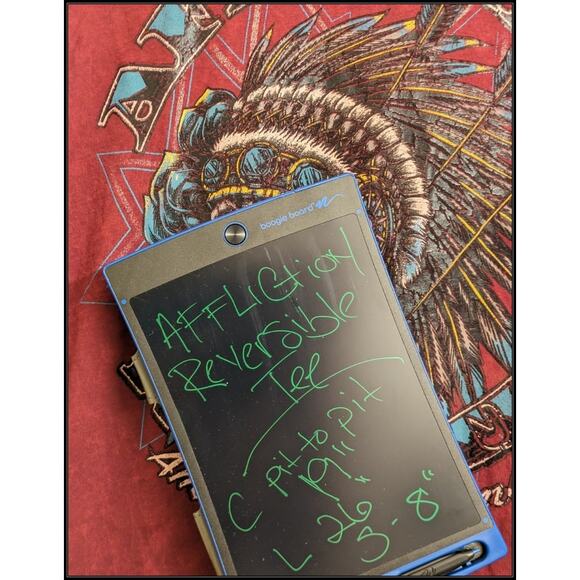 boogie board
AFFLICTION
Reversible
Tee
C pit to pit
19"
L 26"
S - 8"